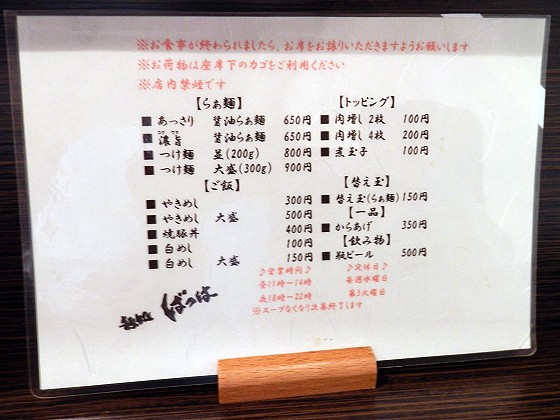 ※お食事が終わられましたら、お席をお譲りいただきますようお願いします
※お荷物は座席下のカゴをご利用ください
※店内禁煙です
【らぁ麺】
■ あっさり 醤油らぁ麺 650円
■ 濃旨 醤油らぁ麺 650円
■ つけ麺 並(200g) 800円
■ つけ麺 大盛(300g) 900円
【ご飯】
■ やきめし 300円
■ やきめし 大盛 500円
■ 焼豚丼 400円
■ 白めし 100円
■ 白めし 大盛 150円
【トッピング】
■ 肉増し 2枚 100円
■ 肉増し 4枚 200円
■ 煮玉子 100円
【替え玉】
■ 替え玉(らぁ麺) 150円
【一品】
■ からあげ 350円
【飲み物】
■ 瓶ビール 500円
♪営業時間♪
昼11時〜14時
夜18時〜22時
♪定休日♪
毎週水曜日
第3火曜日
※スープなくなり次第終了します
ばっは